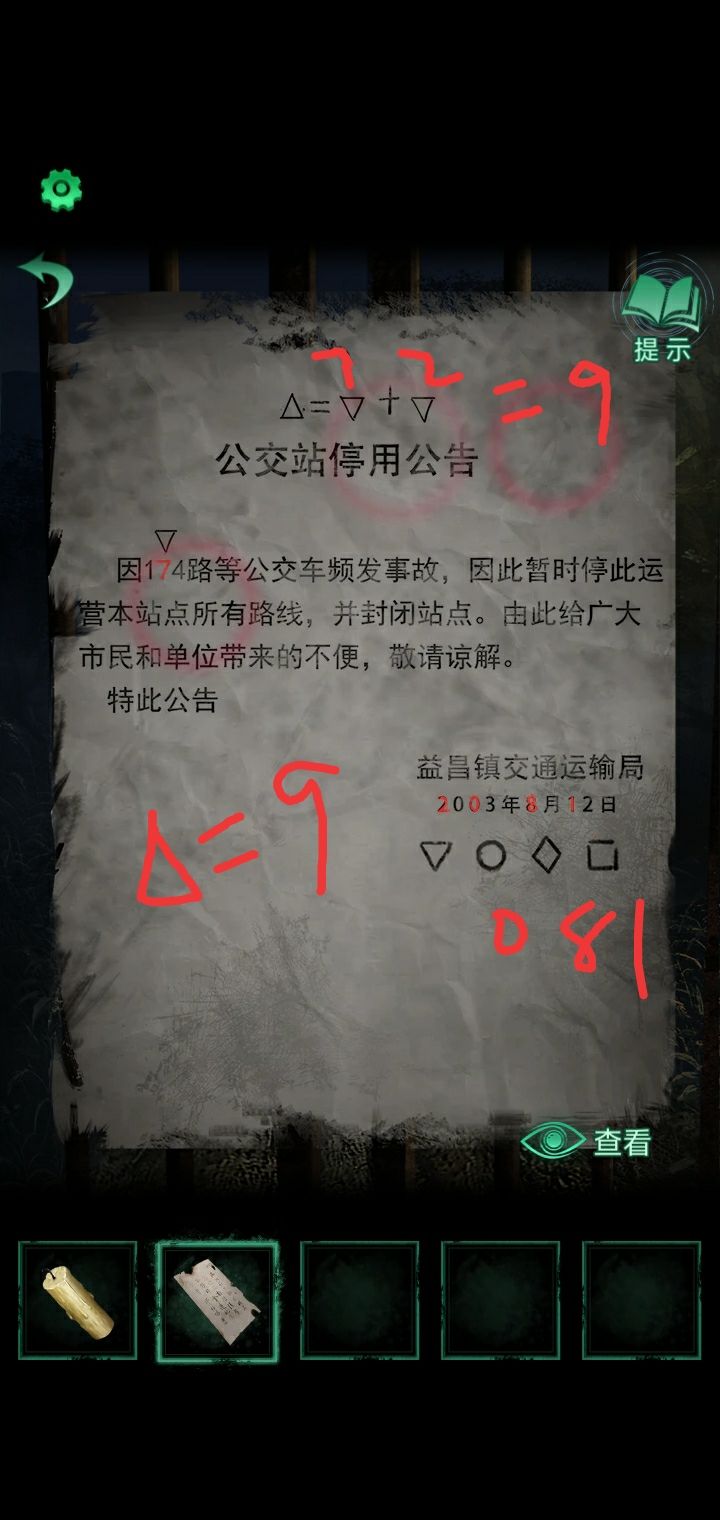 提示
7 2 = 9
△=▽+▽
公交站停用公告
▽
因174路等公交车频发事故，因此暂时停此运
营本站点所有路线，并封闭站点。由此给广大
市民和单位带来的不便，敬请谅解。
特此公告
益昌镇交通运输局
2003年8月12日
▽○◇□
△=9
081
查看